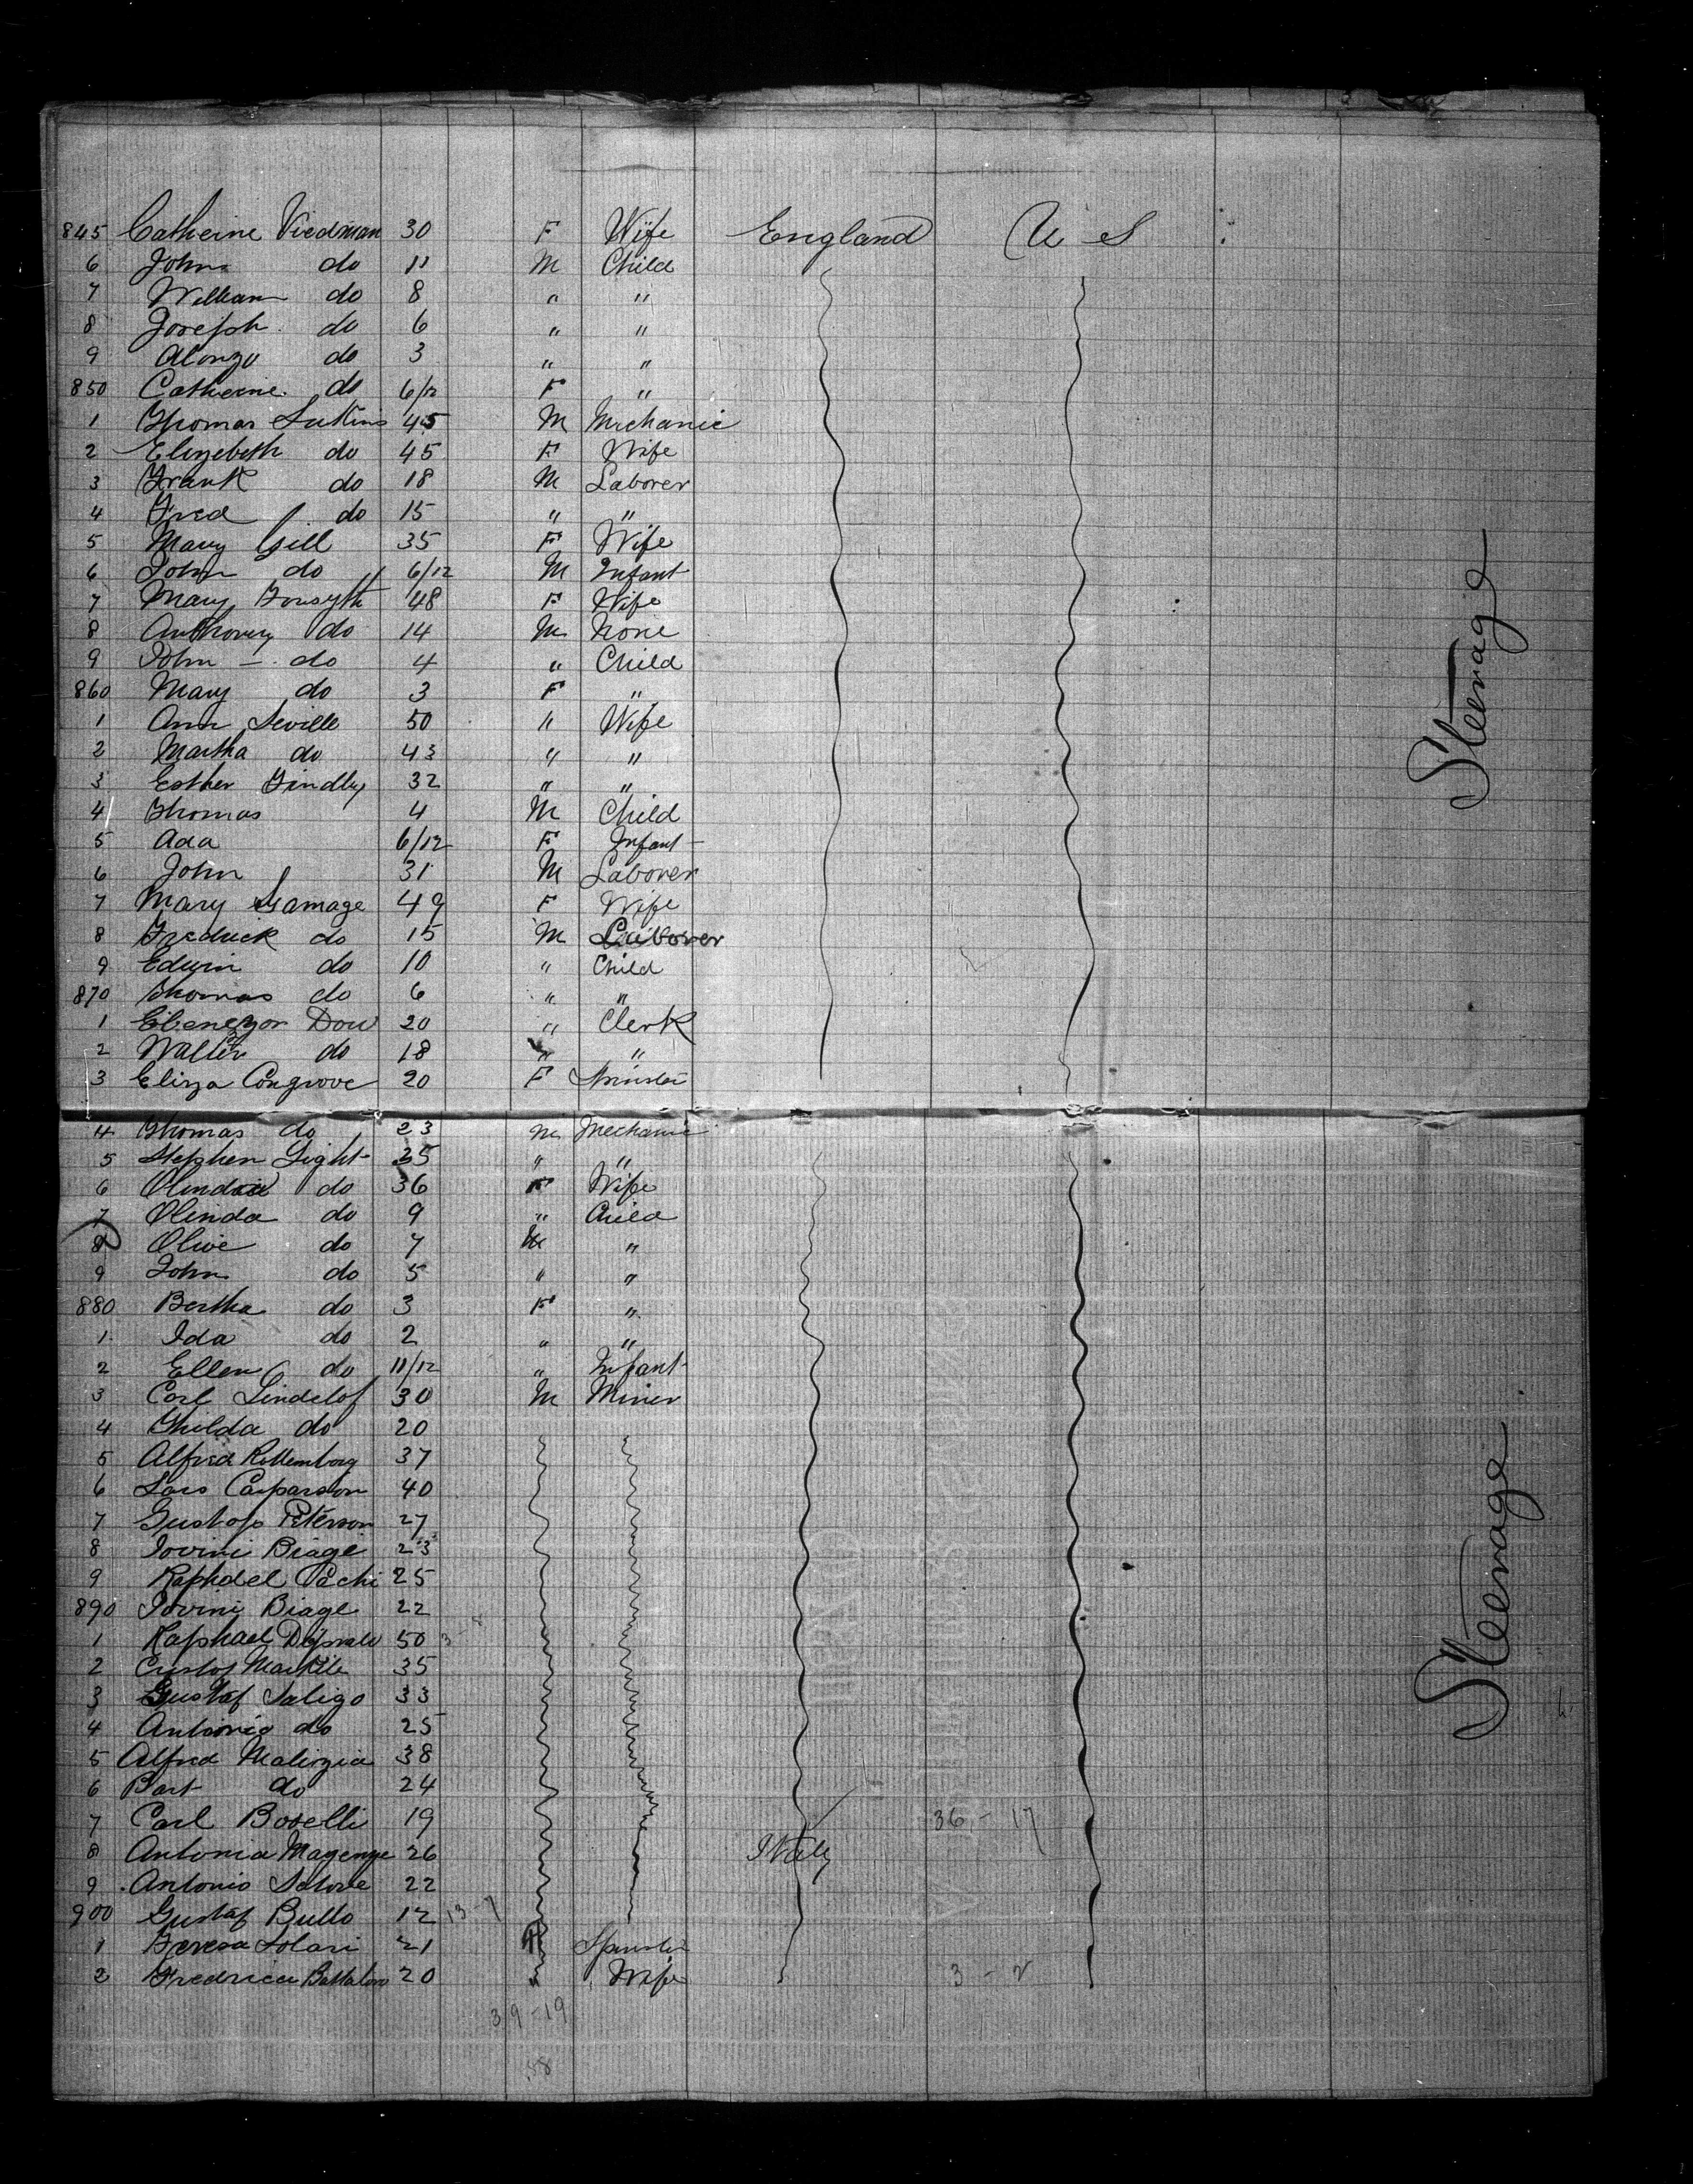 845 Catherine Viedman 30 F Wife England U S
6 John do 11 M Child
7 William do 8 " "
8 Joseph do 6 " "
9 Alonzo do 3 " "
850 Catherine do 6/12 F "
1 Thomas 45 M Mechanic
2 Elizebeth do 45 F Wife
3 Frank do 18 M Laborer
4 Fred do 15 " "
5 Mary Gill 35 F Wife
6 John do 6/12 M Infant
7 Mary Forsyth 48 F Wife
8 Anthoney do 14 M None
9 John do 4 " Child
860 Mary do 3 F "
1 Ann Seville 50 " Wife
2 Martha do 43 " "
3 Esther Findley 32 " "
4 Thomas 4 M Child
5 Ada 6/12 F Infant
6 John 31 M Laborer
7 Mary Gamage 49 F Wife
8 Fredrick do 15 M Laborer
9 Edwin do 10 " Child
870 Thomas do 6 " "
1 Ebenezor Dow 20 " Clerk
2 Walter do 18 " "
3 Eliza Congrove 20 F Spinster
Steerage
4 Thomas do 23 M Mechanic
5 Stephen Light 35 " "
6 do 36 F Wife
7 Olinda do 9 " Child
8 Olive do 7 M "
9 John do 5 " "
880 Bertha do 3 F "
1 Ida do 2 " "
2 Ellen do 11/12 " Infant
3 Carl Lindelof 30 M Miner
4 Ghilda do 20
5 Alfred Rottemborg 37
6 Lars Casparson 40
7 Gustof Peterson 27
8 Iovini Biage 23
9 Raphael Pachi 25
890 Iovini Biage 22
1 Raphael 50
2 Cristof 35
3 Gustaf Saligo 33
4 Antonio do 25
5 Alfred Malizia 38
6 Bart do 24
7 Carl Boselli 19 36 - 17
8 Antonia Magenge 26 Italy
9 Antonio 22
900 Gustaf Bullo 12 13-7
1 Teresa Solari 21 F Spinster
2 Fredrica 20 " Wife 3 - 2
39-19
58
Steerage